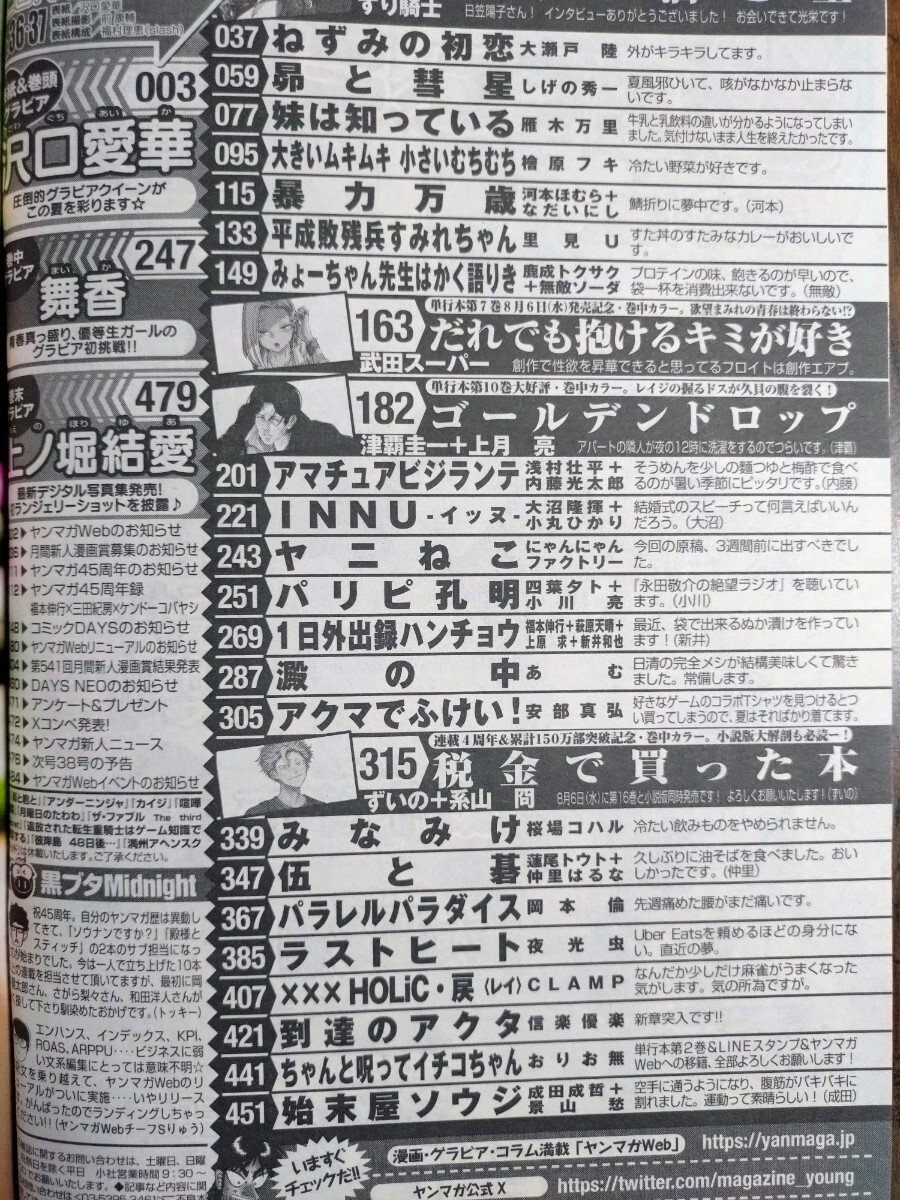 36-37
表紙 沢口愛華
表紙撮影
表紙構成 福村理恵(slash)
003
グラビア
沢口愛華
圧倒的グラビアクイーンが
この夏を彩ります☆
247
グラビア
まいか
舞香
青春真っ盛り、優等生ガールの
グラビア初挑戦!!
479
グラビア
上ノ堀結愛
最新デジタル写真集発売!
ランジェリーショットを披露♪
ヤンマガWebのお知らせ
月間新人漫画賞募集のお知らせ
ヤンマガ45周年のお知らせ
ヤンマガ45周年録
福本伸行×三田紀房×ケンドーコバヤシ
コミックDAYSのお知らせ
ヤンマガWebリニューアルのお知らせ
第541回月間新人漫画賞結果発表
DAYS NEOのお知らせ
アンケート&プレゼント
Xコンペ発表!
ヤンマガ新人ニュース
次号38号の予告
ヤンマガWebイベントのお知らせ
「アンダーニンジャ」「カイジ」「喧嘩
「月曜日のたわわ」「ザ・ファブル The third
「追放された転生重騎士はゲーム知識で
する」「彼岸島 48日後…」「満州アヘンスク
は休載いたします。ご了承ください。
黒ブタMidnight
祝45周年。自分のヤンマガ歴は異動し
てきて、「ソウナンですか?」「殿様と
スティッチ」の2本のサブ担当になっ
が始まりでした。今は一人で立ち上げた10本
の連載を担当させて頂いてますが、最初に岡
太郎さん、さがら梨々さん、和田洋人さんが
して下さり馴染めたおかげです。(トッキー)
エンハンス、インデックス、KPI、
ROAS、ARPPU‥‥ビジネスに弱
い文系編集にとっては意味不明☆
文を乗り越えて、ヤンマガWebのリ
ューアルがついに実施…いやリリース
がんばったのでランディングしちゃっ
ださい!!(ヤンマガWebチーフSりゅう)
に関するお問い合わせは、土曜日、日曜
祭日を除く平日 小社営業時間9:30~
ます。◆記事など内容に関
ずり騎士
日笠陽子さん! インタビューありがとうございました! お会いできて光栄です!
037 ねずみの初恋 大瀬戸 陸 外がキラキラしてます。
059 昴と彗星 しげの秀一 夏風邪ひいて、咳がなかなか止まらな
いです。
077 妹は知っている 雁木万里 牛乳と乳飲料の違いが分かるようになってしまい
ました。気付けないまま人生を終えたかったです。
095 大きいムキムキ 小さいむちむち 檜原フキ 冷たい野菜が好きです。
115 暴力万歳 河本ほむら+
なだいにし 鯖折りに夢中です。(河本)
133 平成敗残兵すみれちゃん 里見U すた丼のすたみなカレーがおいしいで
す。
149 みょーちゃん先生はかく語りき 鹿成トクサク
+無敵ソーダ プロテインの味、飽きるのが早いので、
袋一杯を消費出来ないです。(無敵)
単行本第7巻8月6日(水)発売記念・巻中カラー。欲望まみれの青春は終わらない!?
163 だれでも抱けるキミが好き
武田スーパー 創作で性欲を昇華できると思ってるフロイトは創作エアプ。
単行本第10巻大好評・巻中カラー。レイジの握るドスが久貝の腹を裂く!
182 ゴールデンドロップ
津覇圭一+上月 亮 アパートの隣人が夜の12時に洗濯をするのでつらいです。(津覇)
201 アマチュアビジランテ 浅村壮平+
内藤光太郎 そうめんを少しの麺つゆと梅酢で食べ
るのが暑い季節にピッタリです。(内藤)
221 INNU-イッヌ- 大沼隆揮+
小丸ひかり 結婚式のスピーチって何言えばいいん
だろう。(大沼)
243 ヤニねこ にゃんにゃん
ファクトリー 今回の原稿、3週間前に出すべきでし
た。
251 パリピ孔明 四葉夕ト+
小川 亮 『永田敬介の絶望ラジオ』を聴いてい
ます。(小川)
269 1日外出録ハンチョウ 福本伸行+萩原天晴+
上原 求+新井和也 最近、袋で出来るぬか漬けを作ってい
ます!(新井)
287 澱の中 あむ 日清の完全メシが結構美味しくて驚き
ました。常備します。
305 アクマでふけい! 安部真弘 好きなゲームのコラボTシャツを見つけるとつ
い買ってしまうので、夏はそればかり着てます。
連載4周年&累計150万部突破記念・巻中カラー。小説版大解剖も必読ー!
315 税金で買った本
ずいの+系山 冏 8月6日(水)に第16巻と小説版同時発売です! よろしくお願いいたします!(ずいの)
339 みなみけ 桜場コハル 冷たい飲みものをやめられません。
347 伍と碁 蓮尾トウト+
仲里はるな 久しぶりに油そばを食べました。おい
しかったです。(仲里)
367 パラレルパラダイス 岡本 倫 先週痛めた腰がまだ痛いです。
385 ラストヒート 夜光虫 Uber Eatsを頼めるほどの身分にな
い。直近の夢。
407 ×××HOLiC・戻(レイ) CLAMP なんだか少しだけ麻雀がうまくなった
気がします。気の所為ですが。
421 到達のアクタ 信楽優楽 新章突入です!!
441 ちゃんと呪ってイチコちゃん おりお無 単行本第2巻&LINEスタンプ&ヤンマガ
Webへの移籍、全部よろしくお願いします!
451 始末屋ソウジ 成田成哲+
景山愁 空手に通うようになり、腹筋がバキバキに
割れました。運動って素晴らしい!(成田)
いますぐ
チェックだ!!
漫画・グラビア・コラム満載「ヤンマガWeb」 https://yanmaga.jp
ヤンマガ公式X https://twitter.com/magazine_young